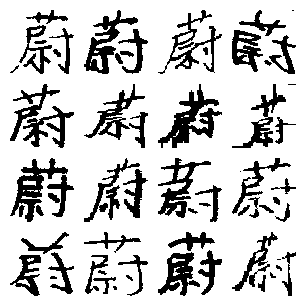 蔚蔚蔚蔚
蔚蔚蔚蔚
蔚蔚蔚蔚
蔚蔚蔚蔚